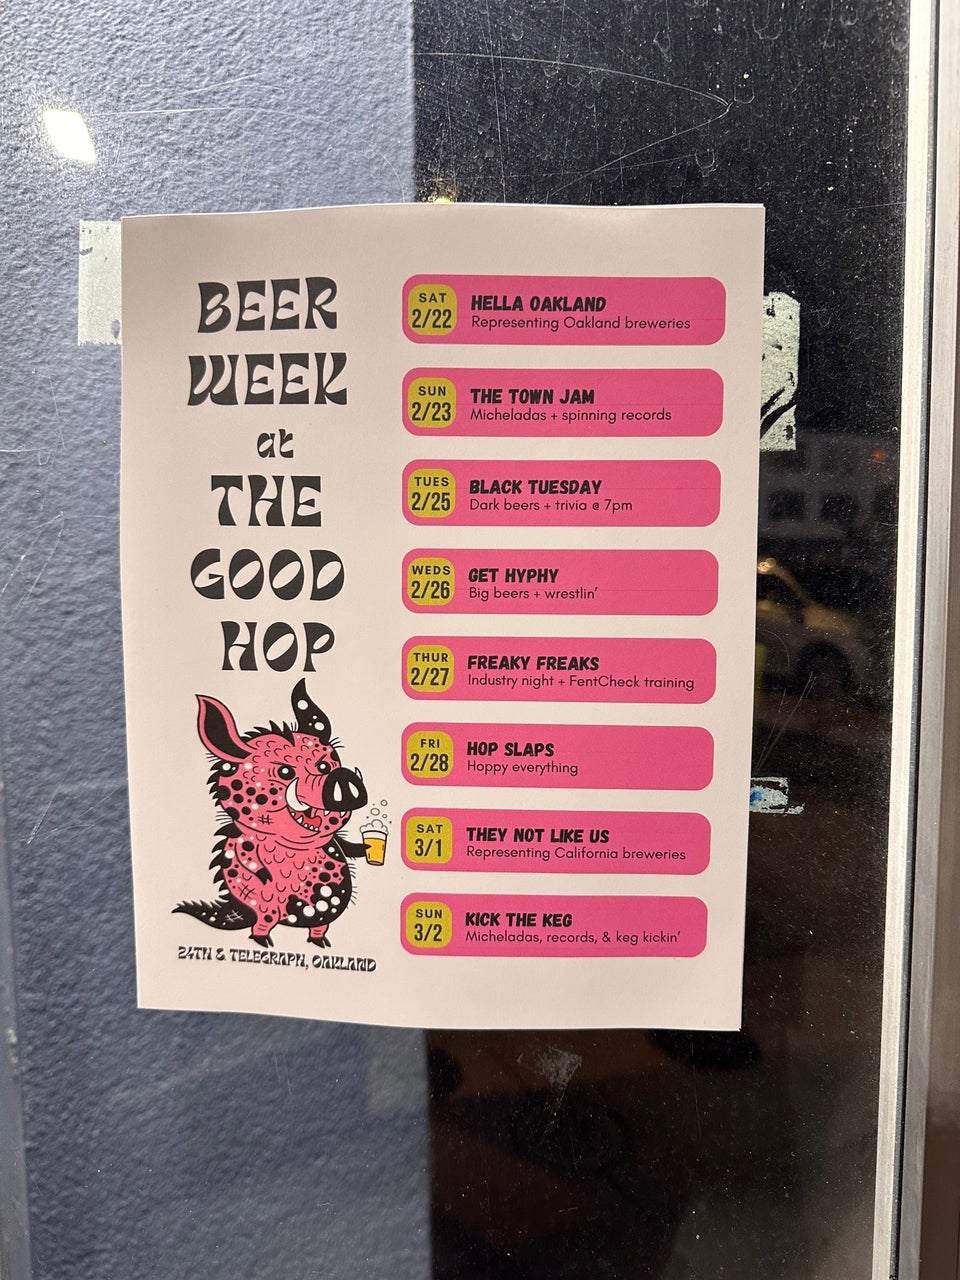 BEER
WEEK
at
THE
GOOD
HOP
24TH & TELEGRAPH, OAKLAND
SAT
2/22
HELLA OAKLAND
Representing Oakland breweries
SUN
2/23
THE TOWN JAM
Micheladas + spinning records
TUES
2/25
BLACK TUESDAY
Dark beers + trivia @ 7pm
WEDS
2/26
GET HYPHY
Big beers + wrestlin'
THUR
2/27
FREAKY FREAKS
Industry night + FentCheck training
FRI
2/28
HOP SLAPS
Hoppy everything
SAT
3/1
THEY NOT LIKE US
Representing California breweries
SUN
3/2
KICK THE KEG
Micheladas, records, & keg kickin'